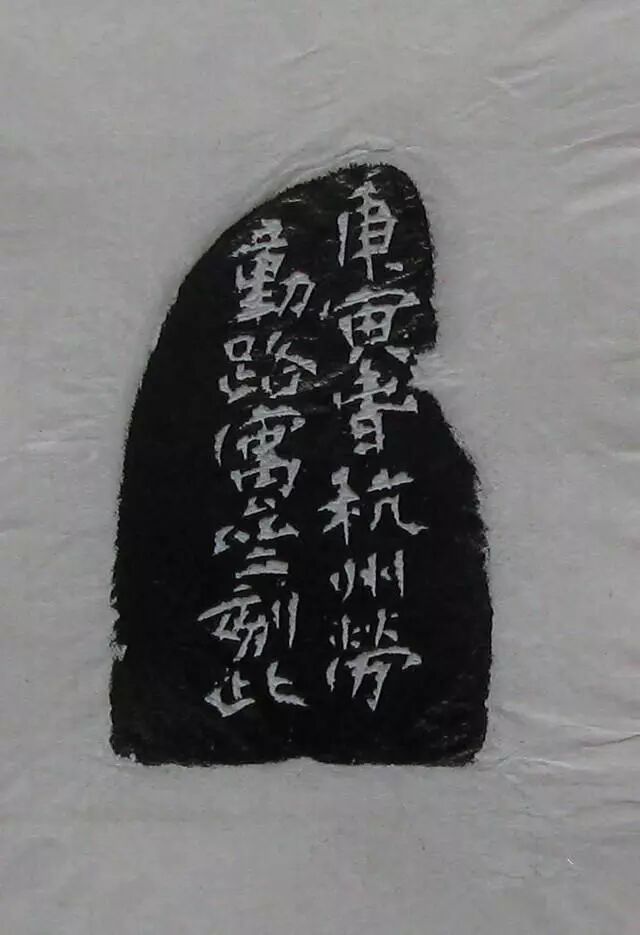 庚寅春杭州勞
動路寓刻此